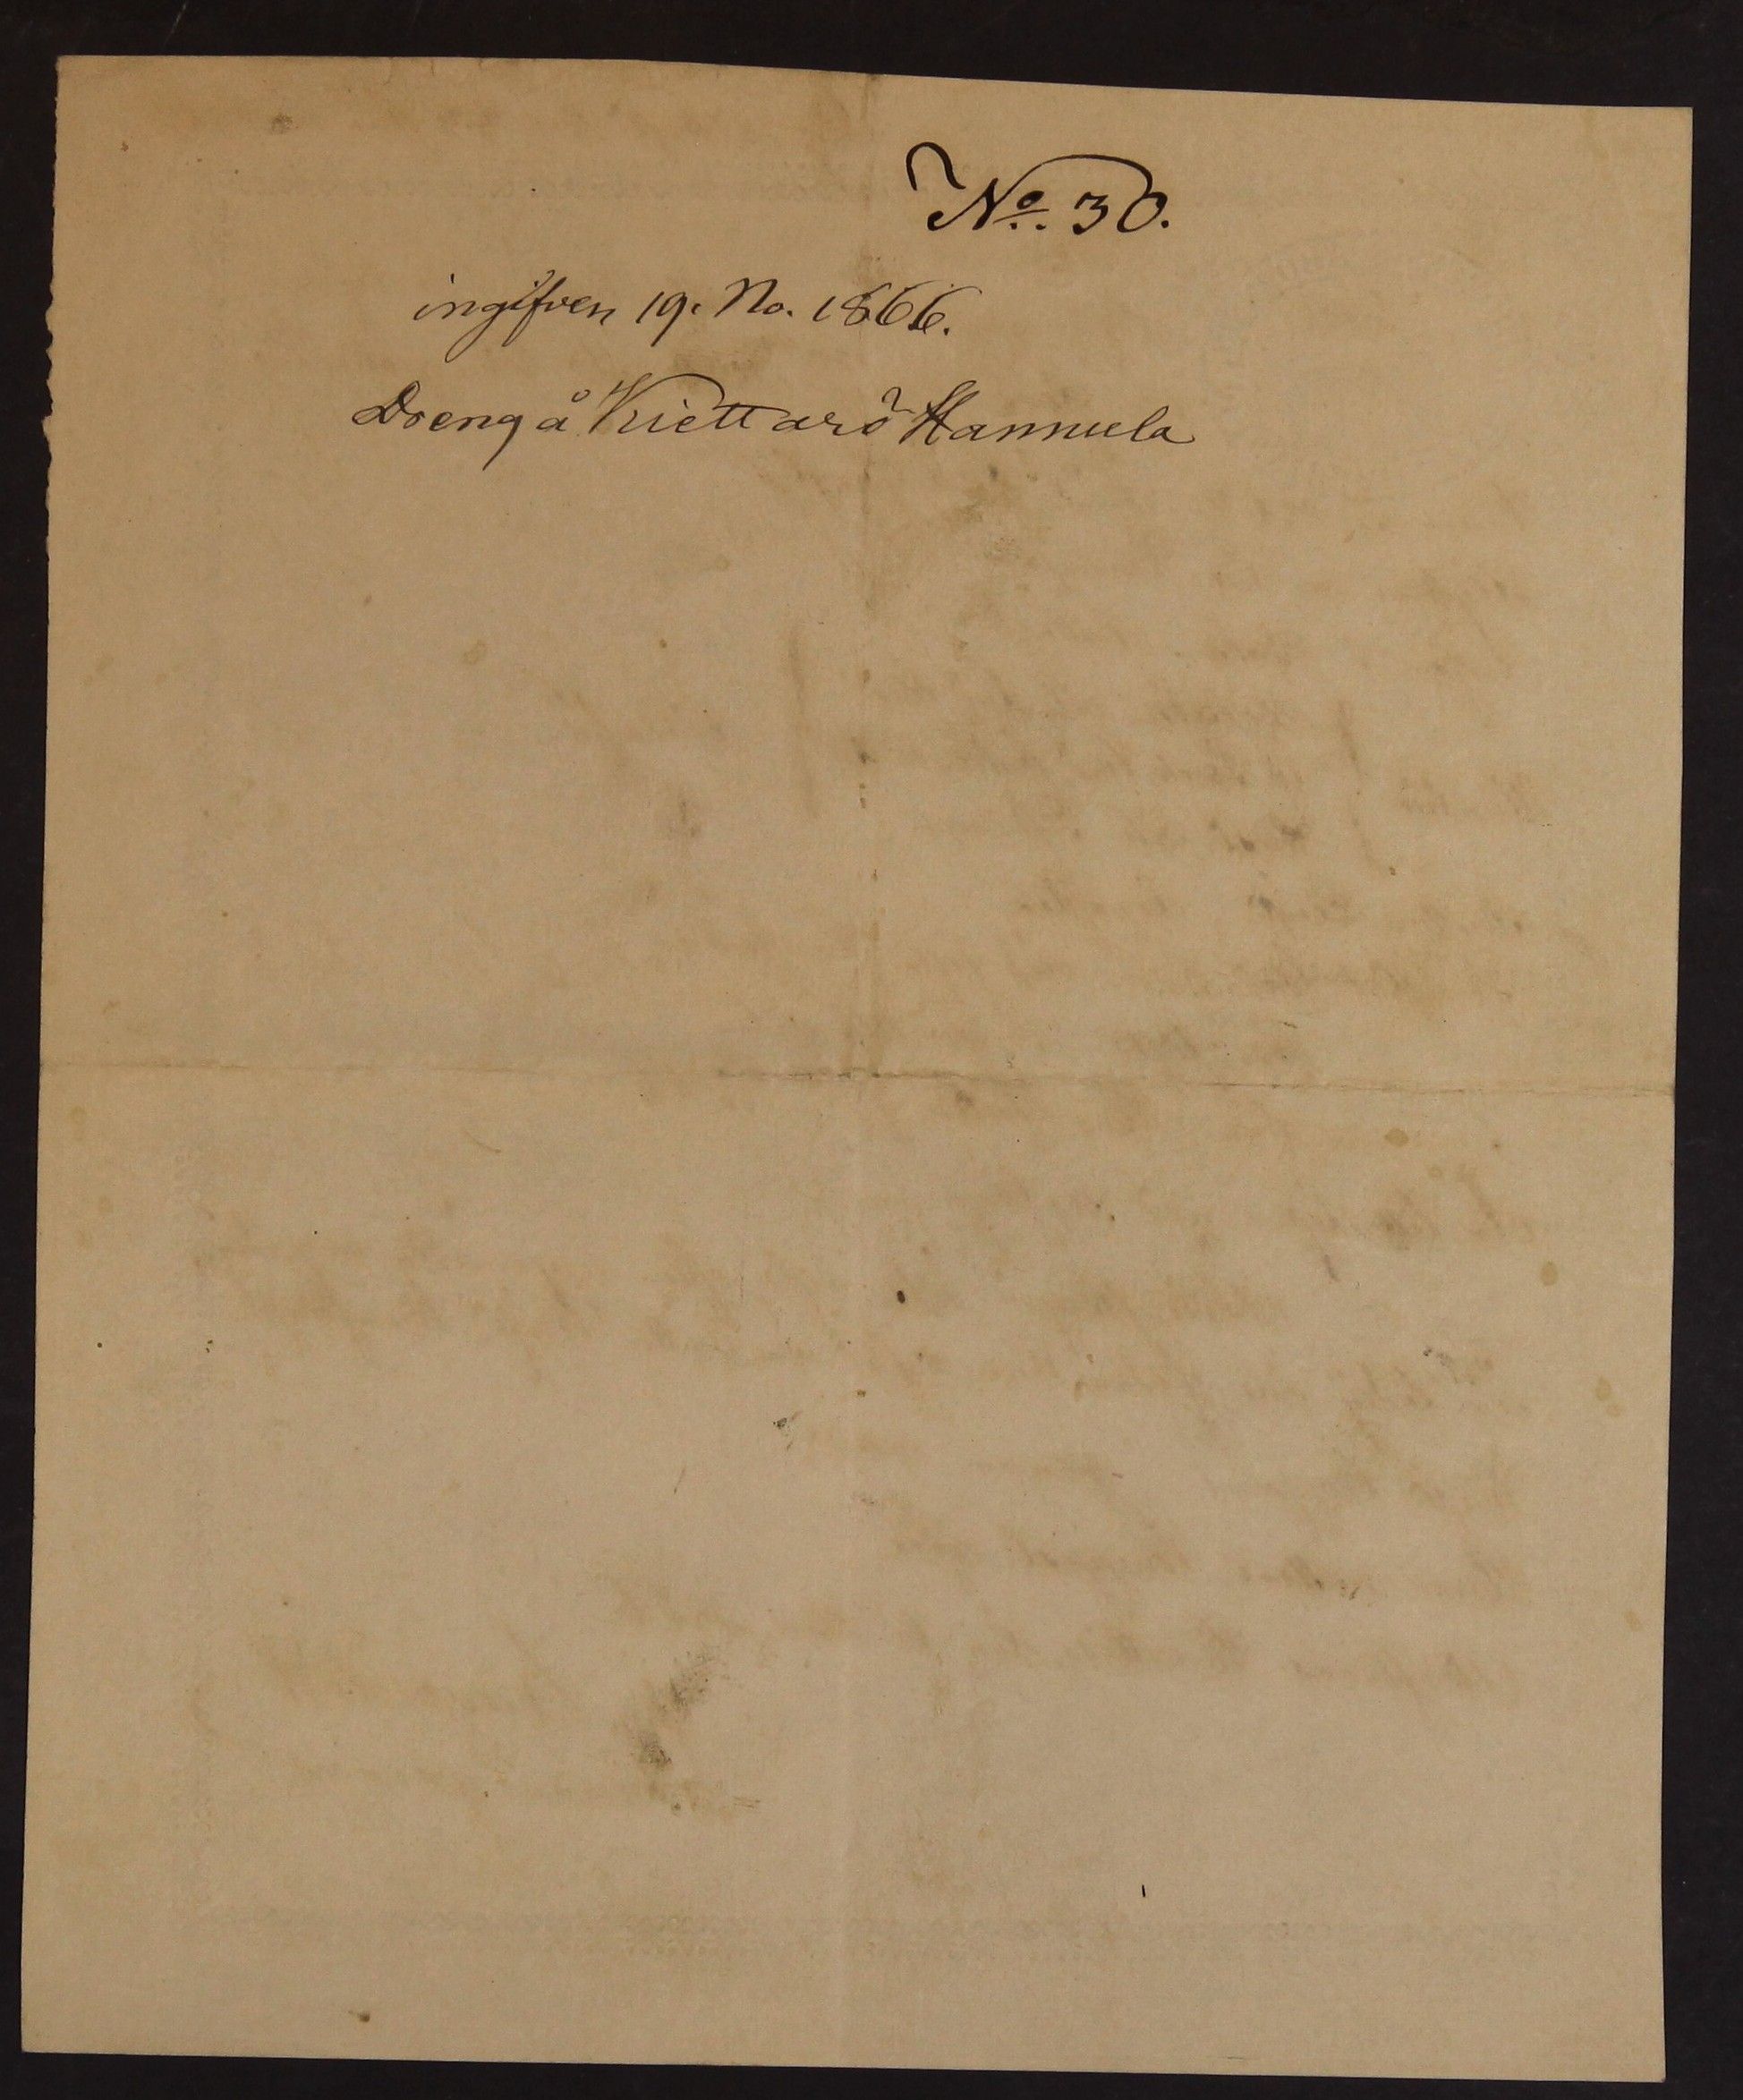 No. 30.
ingifven 19. No. 1866.
Dreng å Kiettarö Hannula